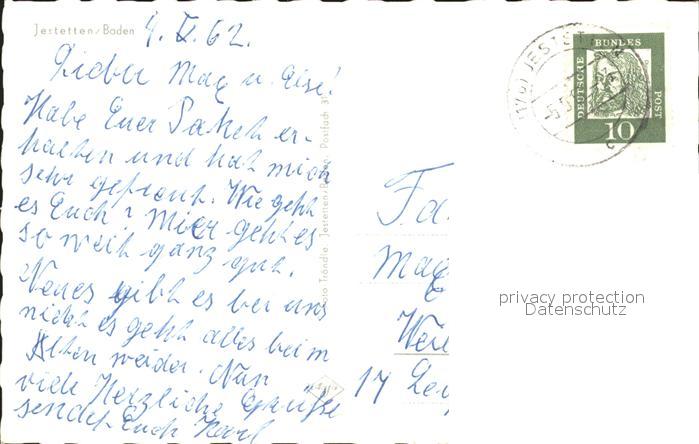 Jestetten/Baden
4. V. 62.
Lieber Max u. Else!
Habe Euer Paket er-
halten und hat mich
sehr gefreut. Wie geht
es Euch? Mier geht es
so weit ganz gut.
Neues gibt es bei uns
nicht es geht alles beim
Alten weider. Nun
viele Herzliche Grüße
sendet Euch Karl
Foto Tröndle Jestetten/Baden Postfach 3
JESTET
DEUTSCHE
BUNDES
POST
10
Fa.
Max
Wei
17
privacy protection
Datenschutz